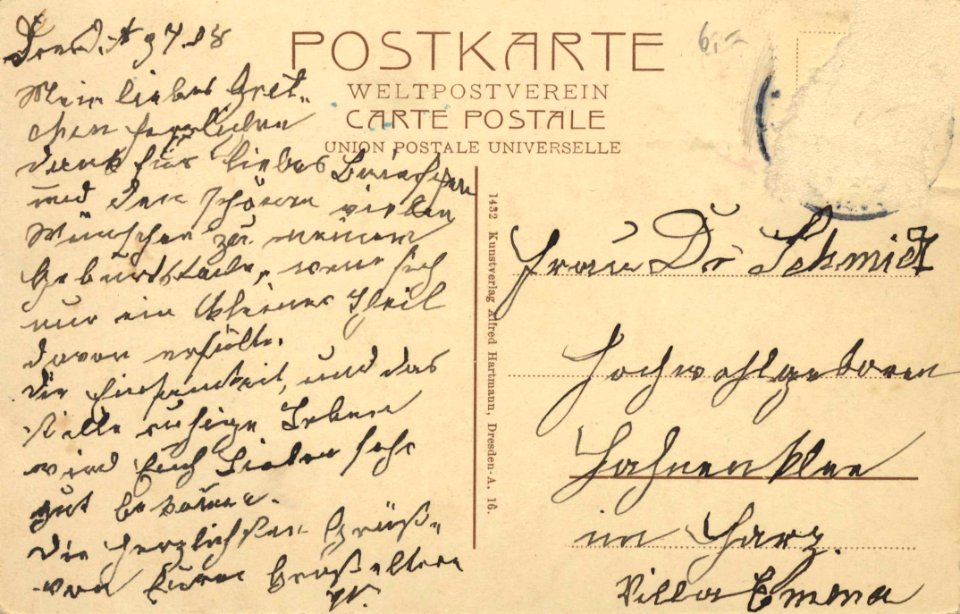 Dresd. A 9 7. 08
Mein liebes Gret-
chen herzlichen
dank für liebes Briefchen
und den schönen vielen
Wünschen zu meinem
Geburtstade, wenn sich
nur ein kleiner Theil
davon erfüllt.
die Einsamkeit, und das
stille ruhige Leben
wird Euch Lieben sehr
gut
die herzlichsten Grüße
von Euren Großeltern
W.
6,-
POSTKARTE
WELTPOSTVEREIN
CARTE POSTALE
UNION POSTALE UNIVERSELLE
1432 Kunstverlag Alfred Hartmann, Dresden-A. 16.
Frau Dr Schmidt
Hochwohlgeboren
Hahnenklee
im Harz.
Villa Emma